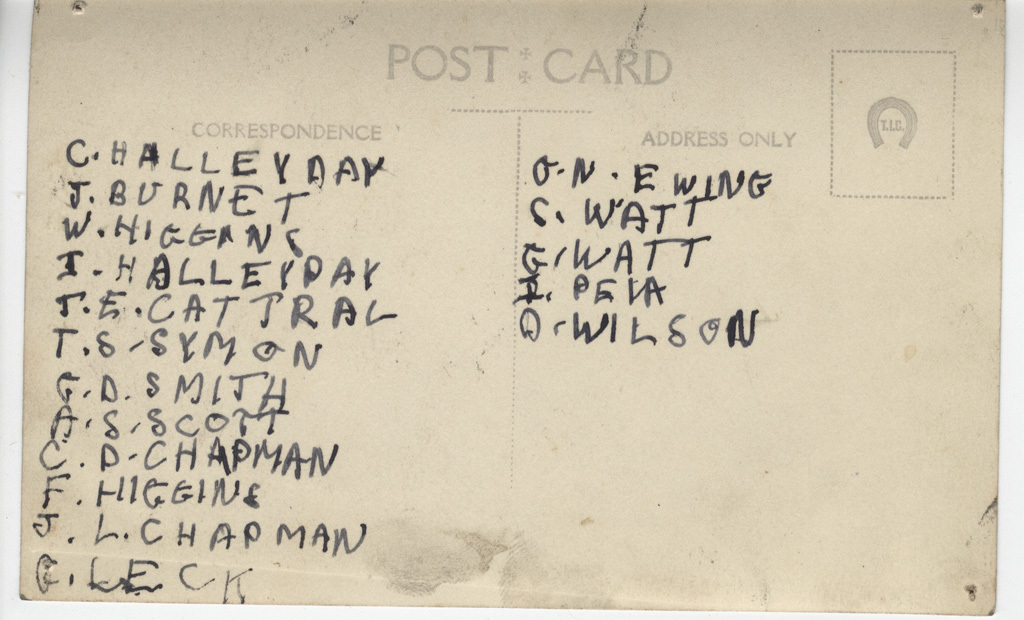 POST CARD
CORRESPONDENCE
C. HALLEYDAY
J. BURNET
W. HIGGANS
I. HALLEYDAY
J. E. CATTRAL
T. S. SYMON
G. D. SMITH
A. S. SCOTT
C. D. CHAPMAN
F. HIGGINS
J. L. CHAPMAN
G. LECK
ADDRESS ONLY
T.I.C.
G. N. EWING
S. WATT
G. WATT
D. WILSON